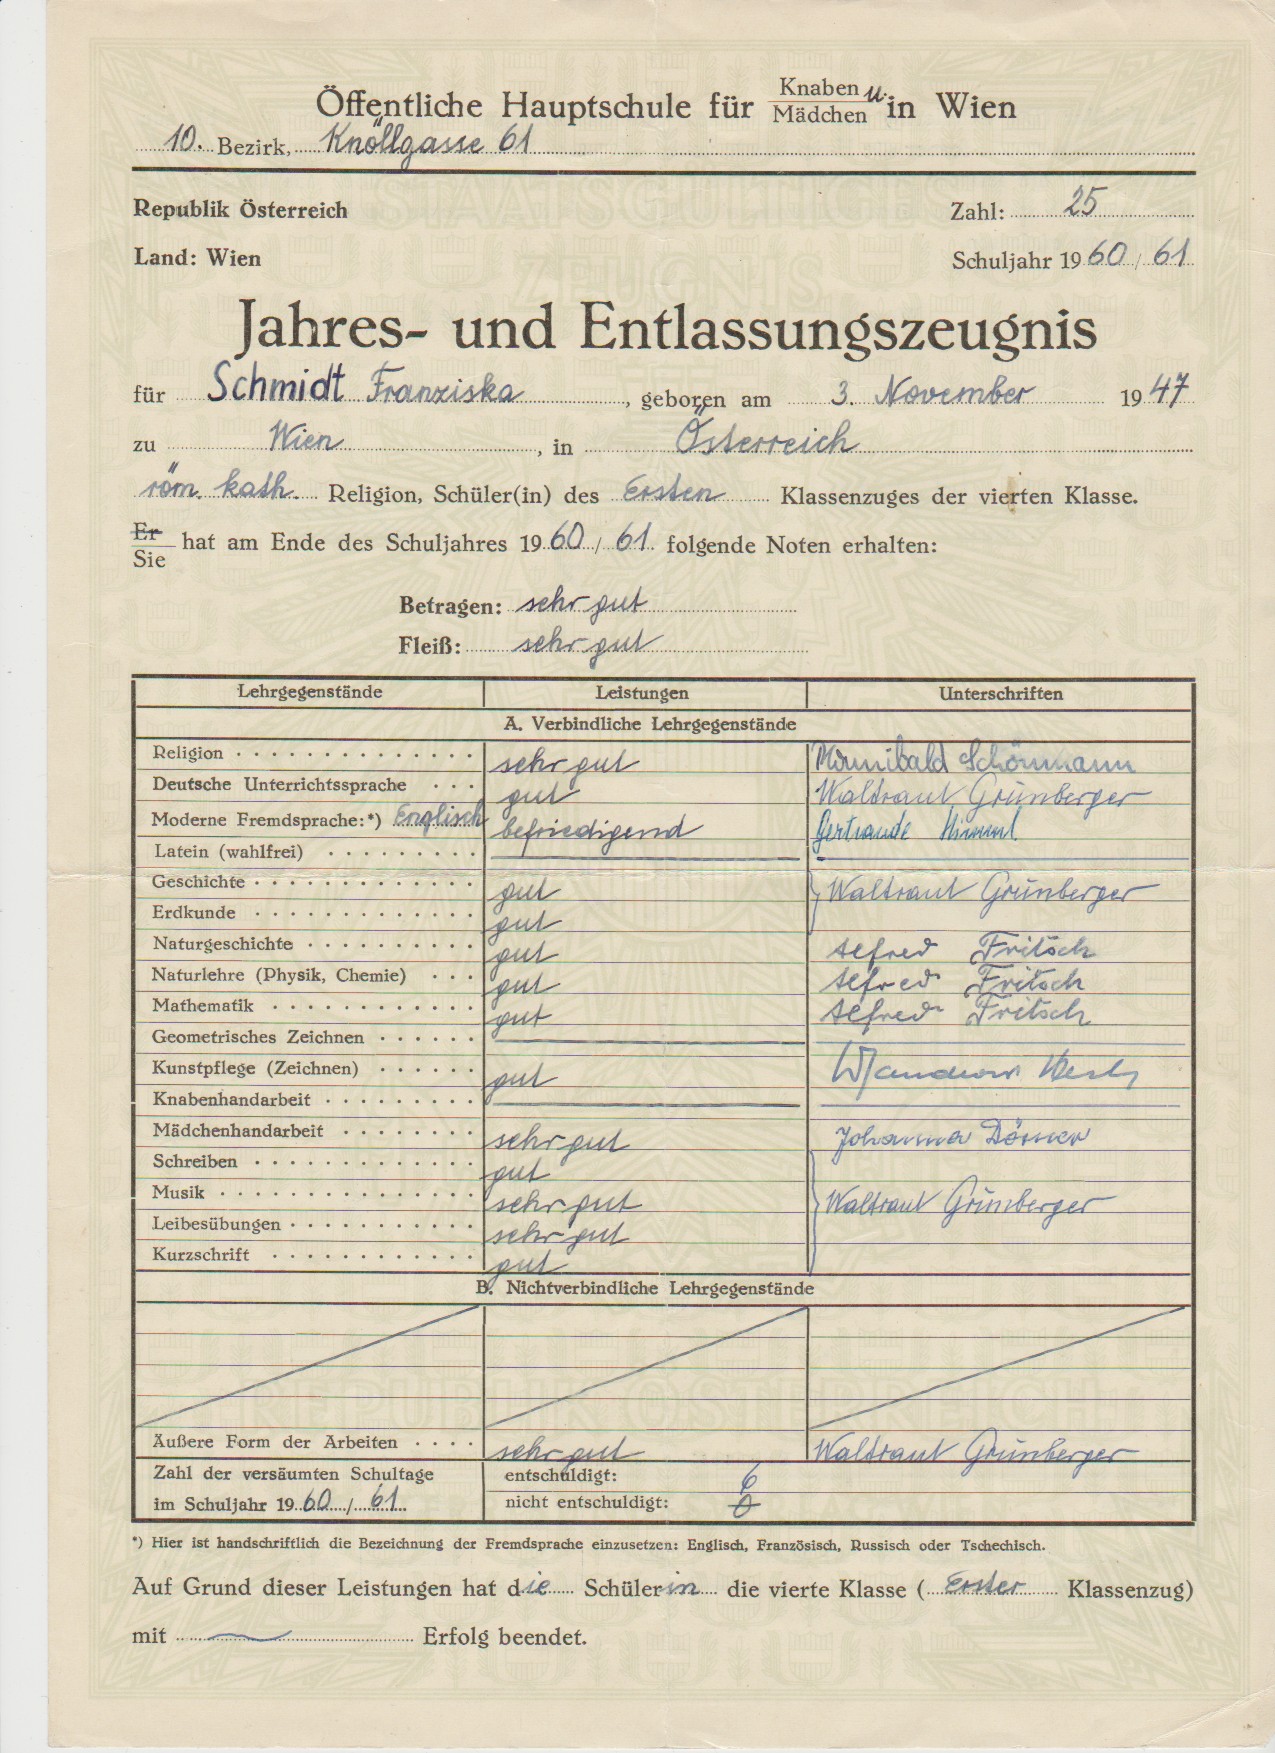 Öffentliche Hauptschule für Knaben u. Mädchen in Wien
10. Bezirk, Knöllgasse 61
Republik Österreich
Zahl: 25
Land: Wien
Schuljahr 1960/61
Jahres- und Entlassungszeugnis
für Schmidt Franziska, geboren am 3. November 1947
zu Wien, in Österreich
röm. kath. Religion, Schüler(in) des Ersten Klassenzuges der vierten Klasse.
Er
Sie hat am Ende des Schuljahres 1960/61 folgende Noten erhalten:
Betragen: sehr gut
Fleiß: sehr gut
Lehrgegenstände Leistungen Unterschriften
A. Verbindliche Lehrgegenstände
Religion sehr gut Schönmann
Deutsche Unterrichtssprache gut Waltraut Grünberger
Moderne Fremdsprache:*) Englisch befriedigend Gertraude
Latein (wahlfrei)
Geschichte gut Waltraut Grünberger
Erdkunde gut
Naturgeschichte gut Alfred Fritsch
Naturlehre (Physik, Chemie) gut Alfred Fritsch
Mathematik gut Alfred Fritsch
Geometrisches Zeichnen
Kunstpflege (Zeichnen) gut
Knabenhandarbeit
Mädchenhandarbeit sehr gut Johanna
Schreiben gut
Musik sehr gut Waltraut Grünberger
Leibesübungen sehr gut
Kurzschrift gut
B. Nichtverbindliche Lehrgegenstände
Äußere Form der Arbeiten sehr gut Waltraut Grünberger
Zahl der versäumten Schultage entschuldigt: 6
im Schuljahr 1960/61 nicht entschuldigt: 0
*) Hier ist handschriftlich die Bezeichnung der Fremdsprache einzusetzen: Englisch, Französisch, Russisch oder Tschechisch.
Auf Grund dieser Leistungen hat die Schülerin die vierte Klasse (Erster Klassenzug)
mit Erfolg beendet.